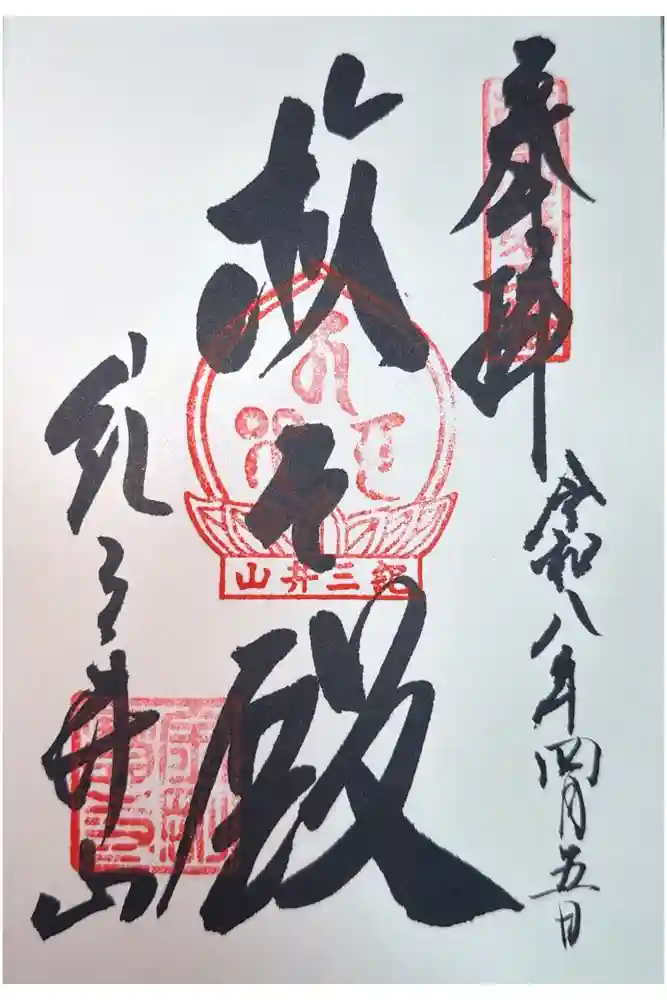 奉拝
令和八年四月五日
救世殿
紀三井山
紀三井山